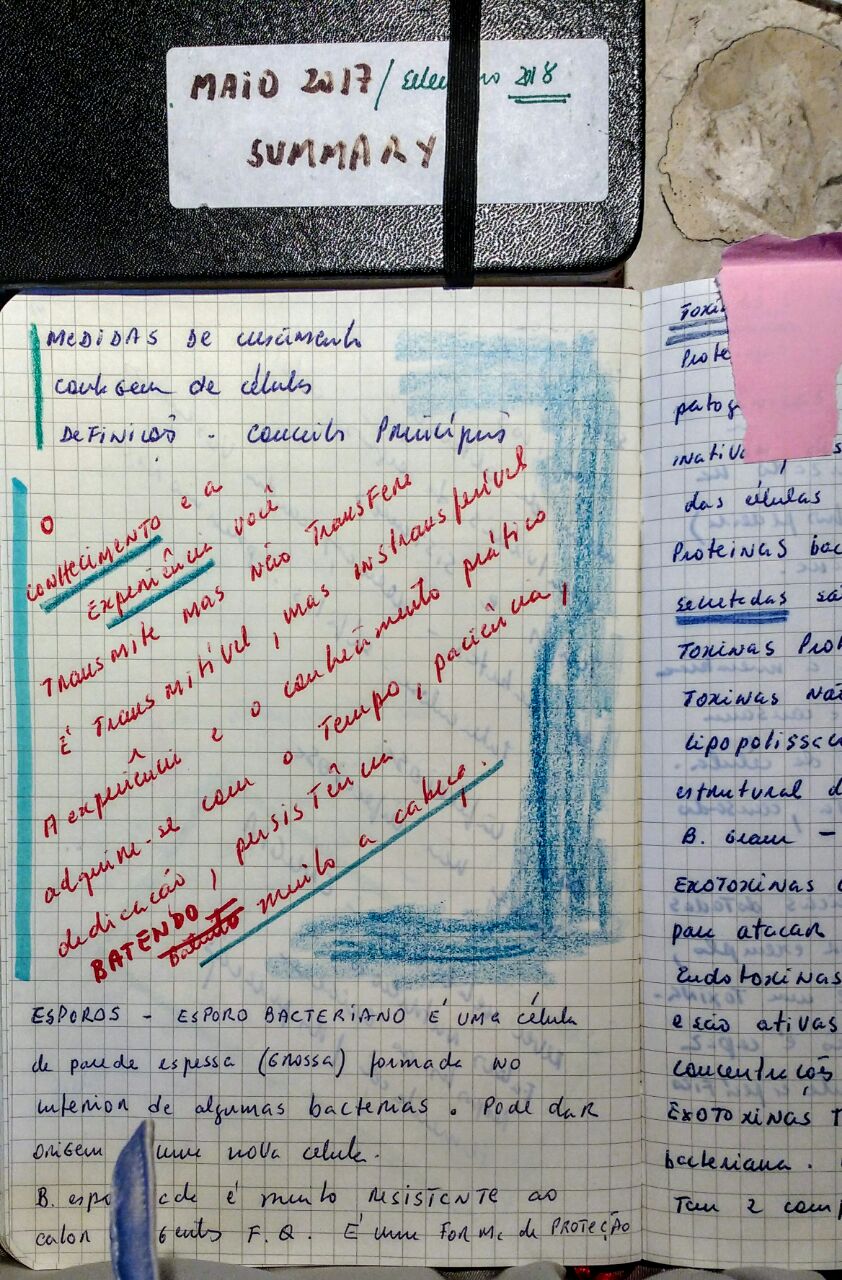 MAIO 2017/Setembro 2018
SUMMARY
MEDIDAS DE crescimento
contagem de células
DEFINIÇÃO - Conceito Princípios
O
CONHECIMENTO e a
Experiência você
Transmite mas não Transfere
É Transmitível, mas instransferível
A experiência e o conhecimento prático
adquire-se com o Tempo, paciência,
dedicação, persistência
BATENDO muito a cabeça.
ESPOROS - ESPORO BACTERIANO É UMA célula
de parede espessa (Grossa) formada NO
interior de algumas bacterias. Pode dar
origem uma nova celula.
B. é muito RESISTENTE ao
calor F.Q. É uma FORMA de PROTEÇÃO
Prote
patog
inativ
das células
Proteinas bac
secretadas sã
Toxinas Prot
Toxinas Não
lipopolissac
estrutural d
B. Gram -
EXOTOXINAS
para atacar
Endotoxinas
e são ativas
concentrações
EXOTOXINAS T
bacteriana.
Tem 2 comp